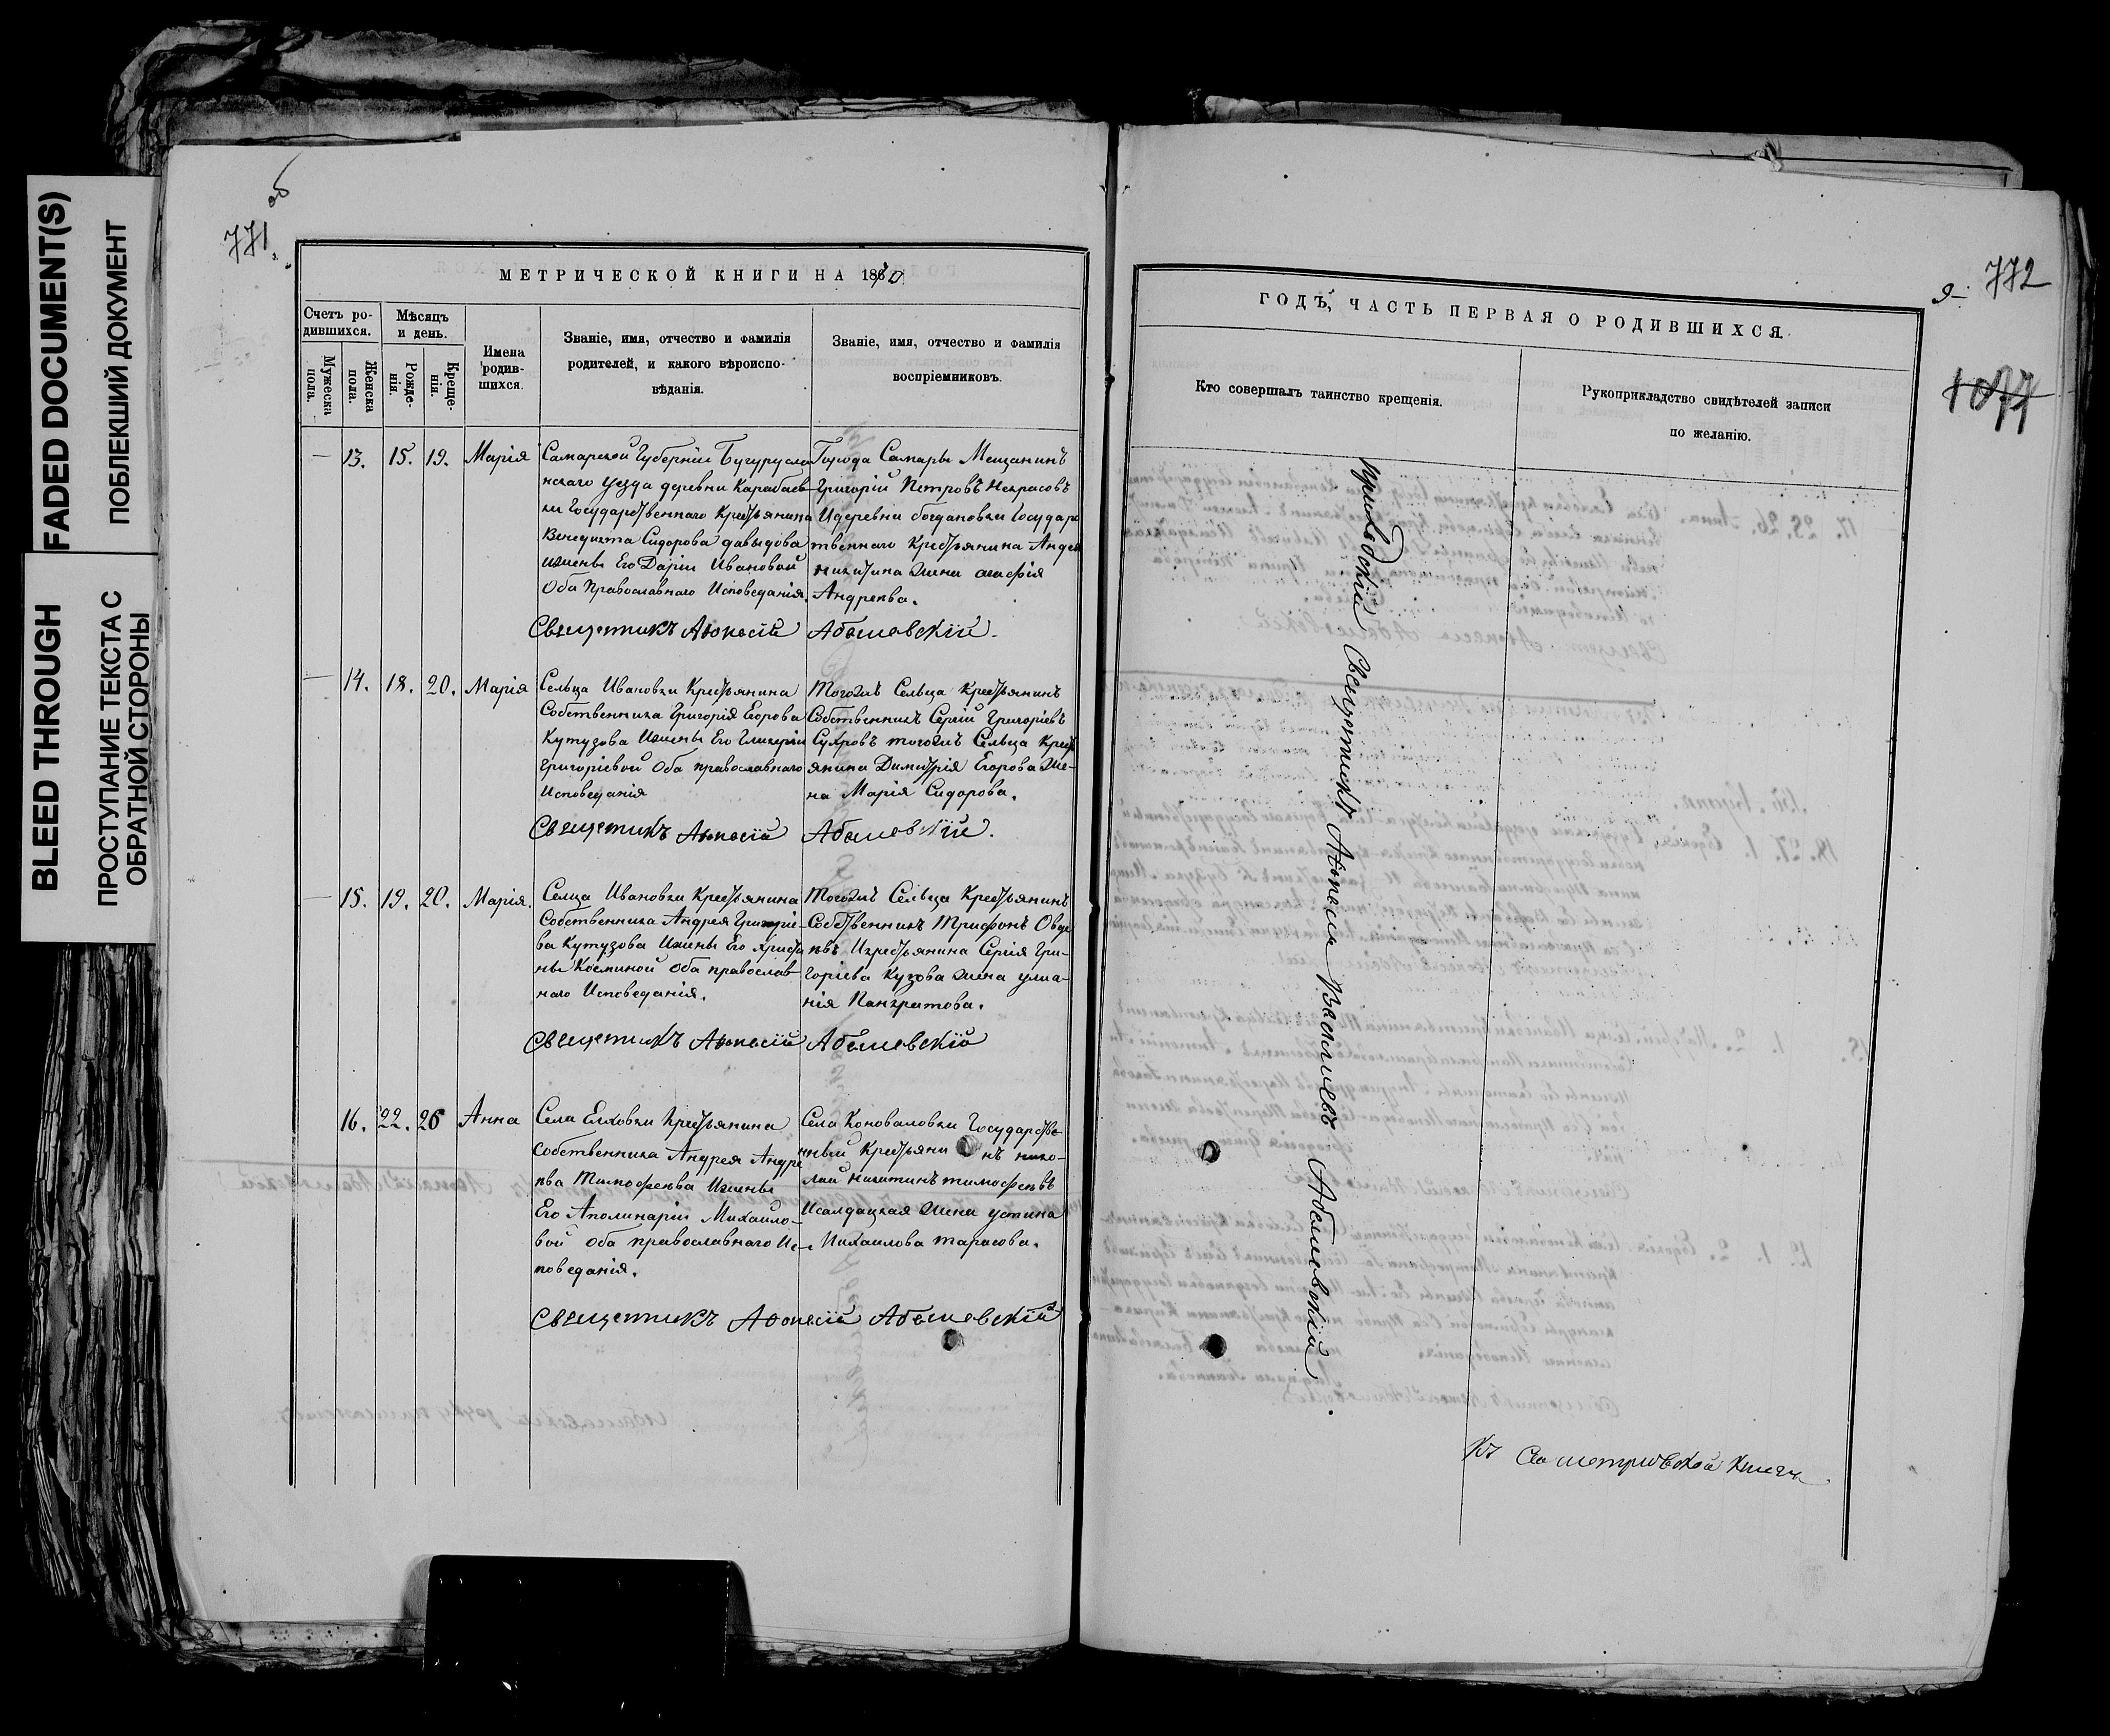 FADED DOCUMENT(S)
ПОБЛЕКШИЙ ДОКУМЕНТ
BLEED THROUGH
ПРОСТУПАНИЕ ТЕКСТА С
ОБРАТНОЙ СТОРОНЫ
771.
об
МЕТРИЧЕСКОЙ КНИГИ НА 1870
Счетъ ро-
дившихся.
Мужеска
пола.
Женска
пола.
Мѣсяцъ
и день.
Рожде-
нія.
Креще-
нія.
Имена
родив-
шихся.
Званіе, имя, отчество и фамилія
родителей, и какого вѣроиспо-
вѣданія.
Званіе, имя, отчество и фамилія
воспріемниковъ.
— 13. 15. 19. Марія
Самарской Губерніи Бугурусла
нскаго уезда деревни Карабаев-
ки Государственнаго Крестьянина
Венедикта Сидорова давыдова
ижены Его Даріи Ивановой
Оба Православнаго Исповеданія.
Города Самары Мещанинъ
Григорій Петровъ Некрасовъ
Идеревни богдановки Государс
твеннаго Крестьянина Андея
никитина жена агафія
Андреева.
Священникъ Афонасій Абамевскій.
— 14. 18. 20. Марія
Сельца Ивановки Крестьянина
Собственника Григорія Егорова
Кутузова Ижены Его Гликеріи
Григоріевой Оба православнаго
Исповеданія
Тогожъ Сельца Крестьянинъ
Собственникъ Сергій Григоріевъ
тогожъ Сельца Крест
янина Димитрія Егорова Же-
на Марія Сидорова.
Священникъ Афонасій Абамевскій.
— 15. 19. 20. Марія.
Селца Ивановки Крестьянина
Собственника Андрея Григоріе-
ва Кутузова Ижены Его христи
ны Косминой Оба православ-
наго Исповеданія.
Тогожъ Сельца Крестьянинъ
Собственникъ Трифонъ
Икрестьянина Сергія Гри-
горіева Кузова Жена улиа-
нія Панкратова.
Священникъ Афонасій Абамевскій
16. 22. 26 Анна
Села Елховки Крестьянина
Собственника Андрея Андре
ева Тимофеева Ижены
Его Аполинаріи Михаило-
вой оба православнаго Ис-
поведанія.
Села Коноваловки Государстве-
нный Крестьянинъ нико-
лай никитинъ тимофеевъ
Исалдацкая Жена устина
Михаилова тарасова.
Священникъ Афонасій Абамевскій
9- 772
1077
ГОДЪ, ЧАСТЬ ПЕРВАЯ О РОДИВШИХСЯ.
Кто совершалъ таинство крещенія.
Рукоприкладство свидѣтелей записи
по желанію.
приходскій Священникъ Афонасій Васильевъ Абамевскій.
Къ Сей метрической книги